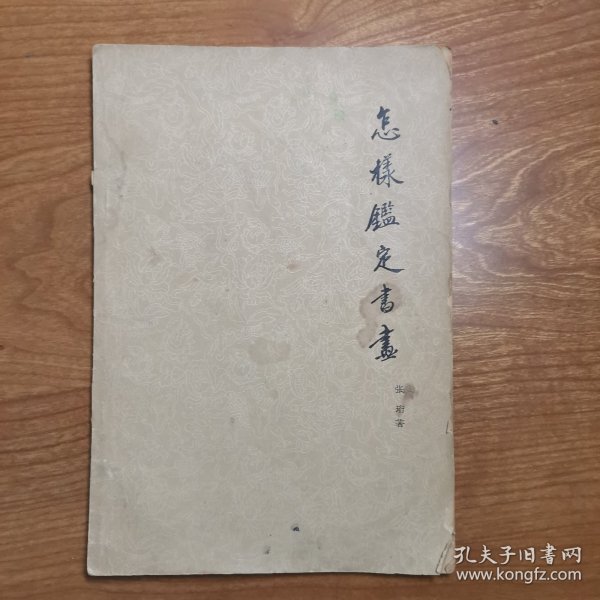 怎樣鑑定書畫
张珩著
孔夫子旧書网
www.kongfz.com